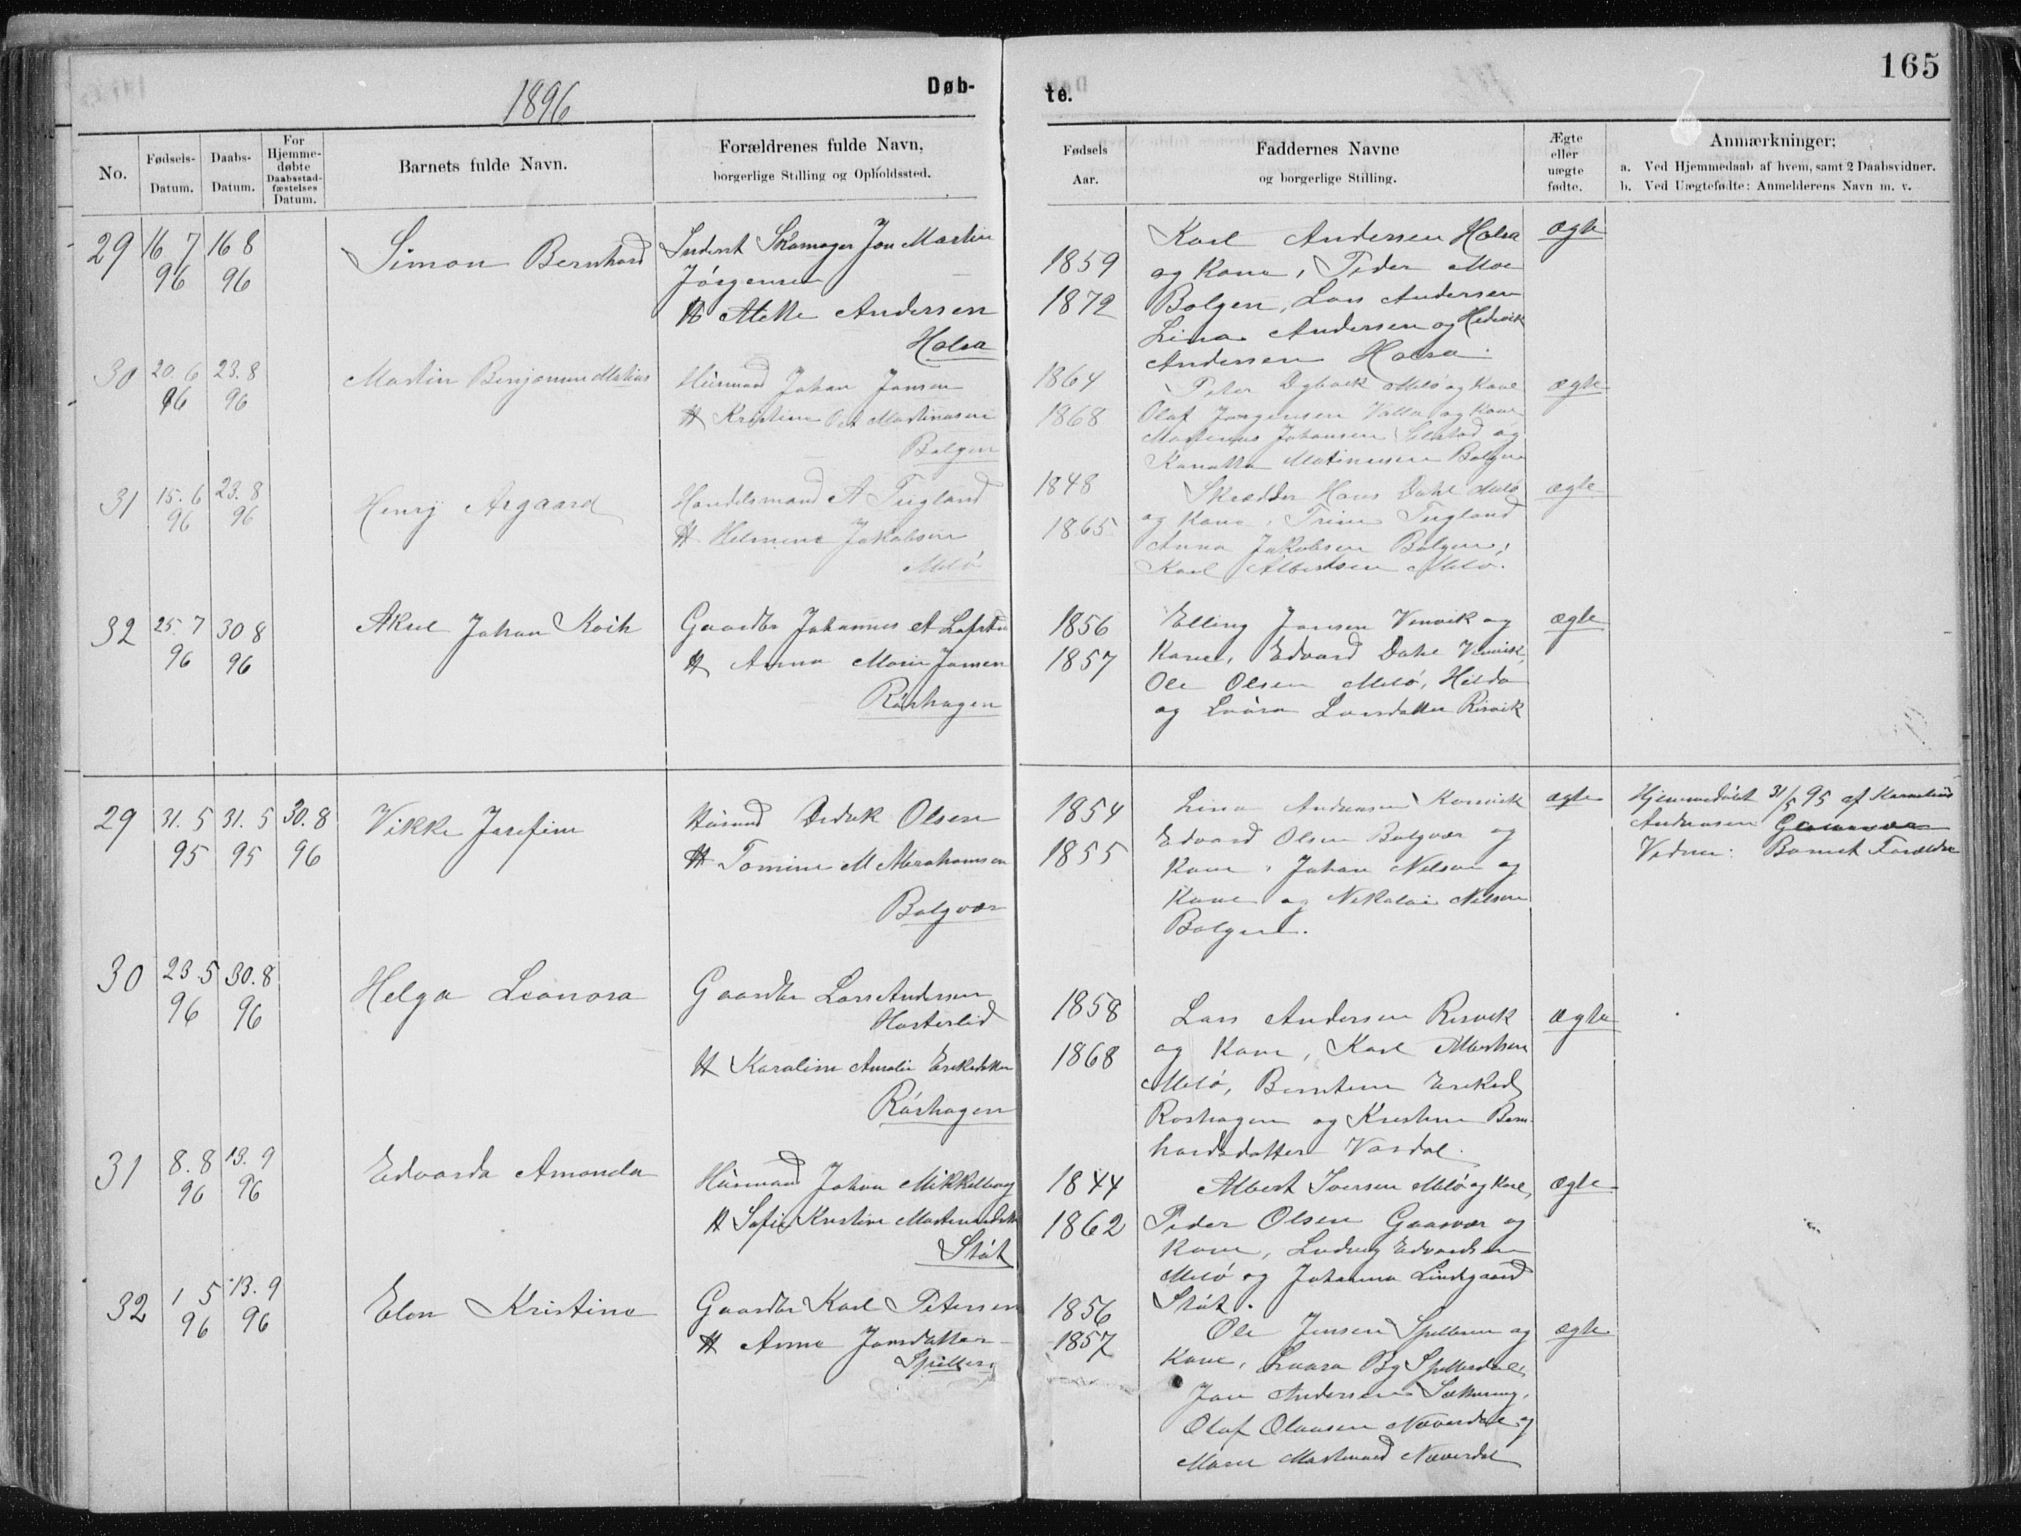 1896
Døb-
te.
165
No.
Fødsels-
Datum.
Daabs-
Datum.
For
Hjemme-
døbte
Daabsstad-
fæstelses
Datum.
Barnets fulde Navn.
Forældrenes fulde Navn,
borgerlige Stilling og Opholdssted.
Fødsels
Aar.
Faddernes Navne
og borgerlige Stilling.
Ægte
eller
uægte
fødte.
Anmærkninger;
a. Ved Hjemmedaab af hvem, samt 2 Daabsvidner.
b. Ved Uægtefødte: Anmelderens Navn m. v.
29 16 7 16 8
96 96
Simon Bernhard
Inderst Skomager Jon Martin
Jørgensen
H Mette Andersen
Halsa
1859
1872
Karl Andersen Halsa
og Kone, Peder Moe
Bolgen, Lars Andersen
Lina Andersen og Hedevik
Andersen Halsa.
ægte
30 20. 6 23. 8
96 96
Martin Benjamin Matias
Husmand Johan Jansen
H Kristine Martinusen
Bolgen
1864
1868
Peter Dybvik Melø og Kone
Olaf Jørgensen Valla og Kone
Martinus Johansen og
Martinusen Bolgen
ægte
31 15. 6 23. 8
96 96
Henry Asgaard
Handelsmand A Tugland
H Helmine Jakobsen
Melø
1848
1865
Skrædder Hans Dahl Melø
og Kone, Trine Tugland
Anna Jakobsen Bolgen,
Karl Albertsen Melø.
ægte
32 25. 7 30 8
96 96
Aksel Johan Koch
Gaardbr Johannes A
H Anna Marie Jansen
Røshagen
1856
1857
Elling Jansen Vinvik og
Kone, Edvard Dahl Vinvik,
Ole Olsen Melø, Hilda
og Laura Larsdatter Risvik
ægte
29 31. 5 31. 5 30. 8
95 95 96
Vikke Josefine
Husmd Didrik Olsen
H Tomine M Abrahamsen
Bolgvær
1854
1855
Lina Andersen
Edvard Olsen Bolgvær og
Kone, Johan Nilsen og
Kone og Nikolai Nilsen
Bolgen.
ægte
Hjemmedøbt 31/5 95 af
Andersen
Vidner: Barnets Forældre
30 23. 5 30. 8
96 96
Helga Leonora
Gaardbr Lars Andersen
H Karoline Amalie Eriksdatter
Røshagen
1858
1868
Lars Andersen Risvik
og Kone, Karl Albertsen
Melø, Berntine Eriksd
Roshagen og Kristine Bern-
hardsdatter Vardal.
ægte
31 8. 8 13. 9
96 96
Edvarda Amanda
Husmand Johan Mikkelborg
H Sofie Kristine Martinusdtr
Støt
1844
1862
Albert Iversen Melø og Kone,
Peder Olsen Gaasvær og
Kone, Ludvig Edvardsen
Melø og Johanna Lindgaard
Støt.
ægte
32 1 5 13. 9
96 96
Elen Kristine
Gaardbr Karl Petersen
H Anne Jansdatter
Spilderen
1856
1857
Ole Jensen Spilderen og
Kone, Laara By Spilderdal,
Jon Andersen
Olaf Olausen Neverdal og
Marie Martinusd Næverdal
ægte